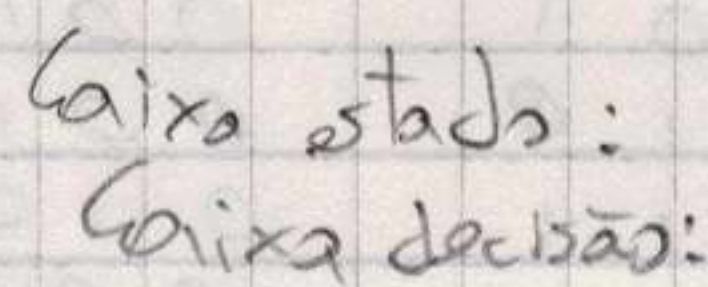 Caixa estado:
Caixa decisão: